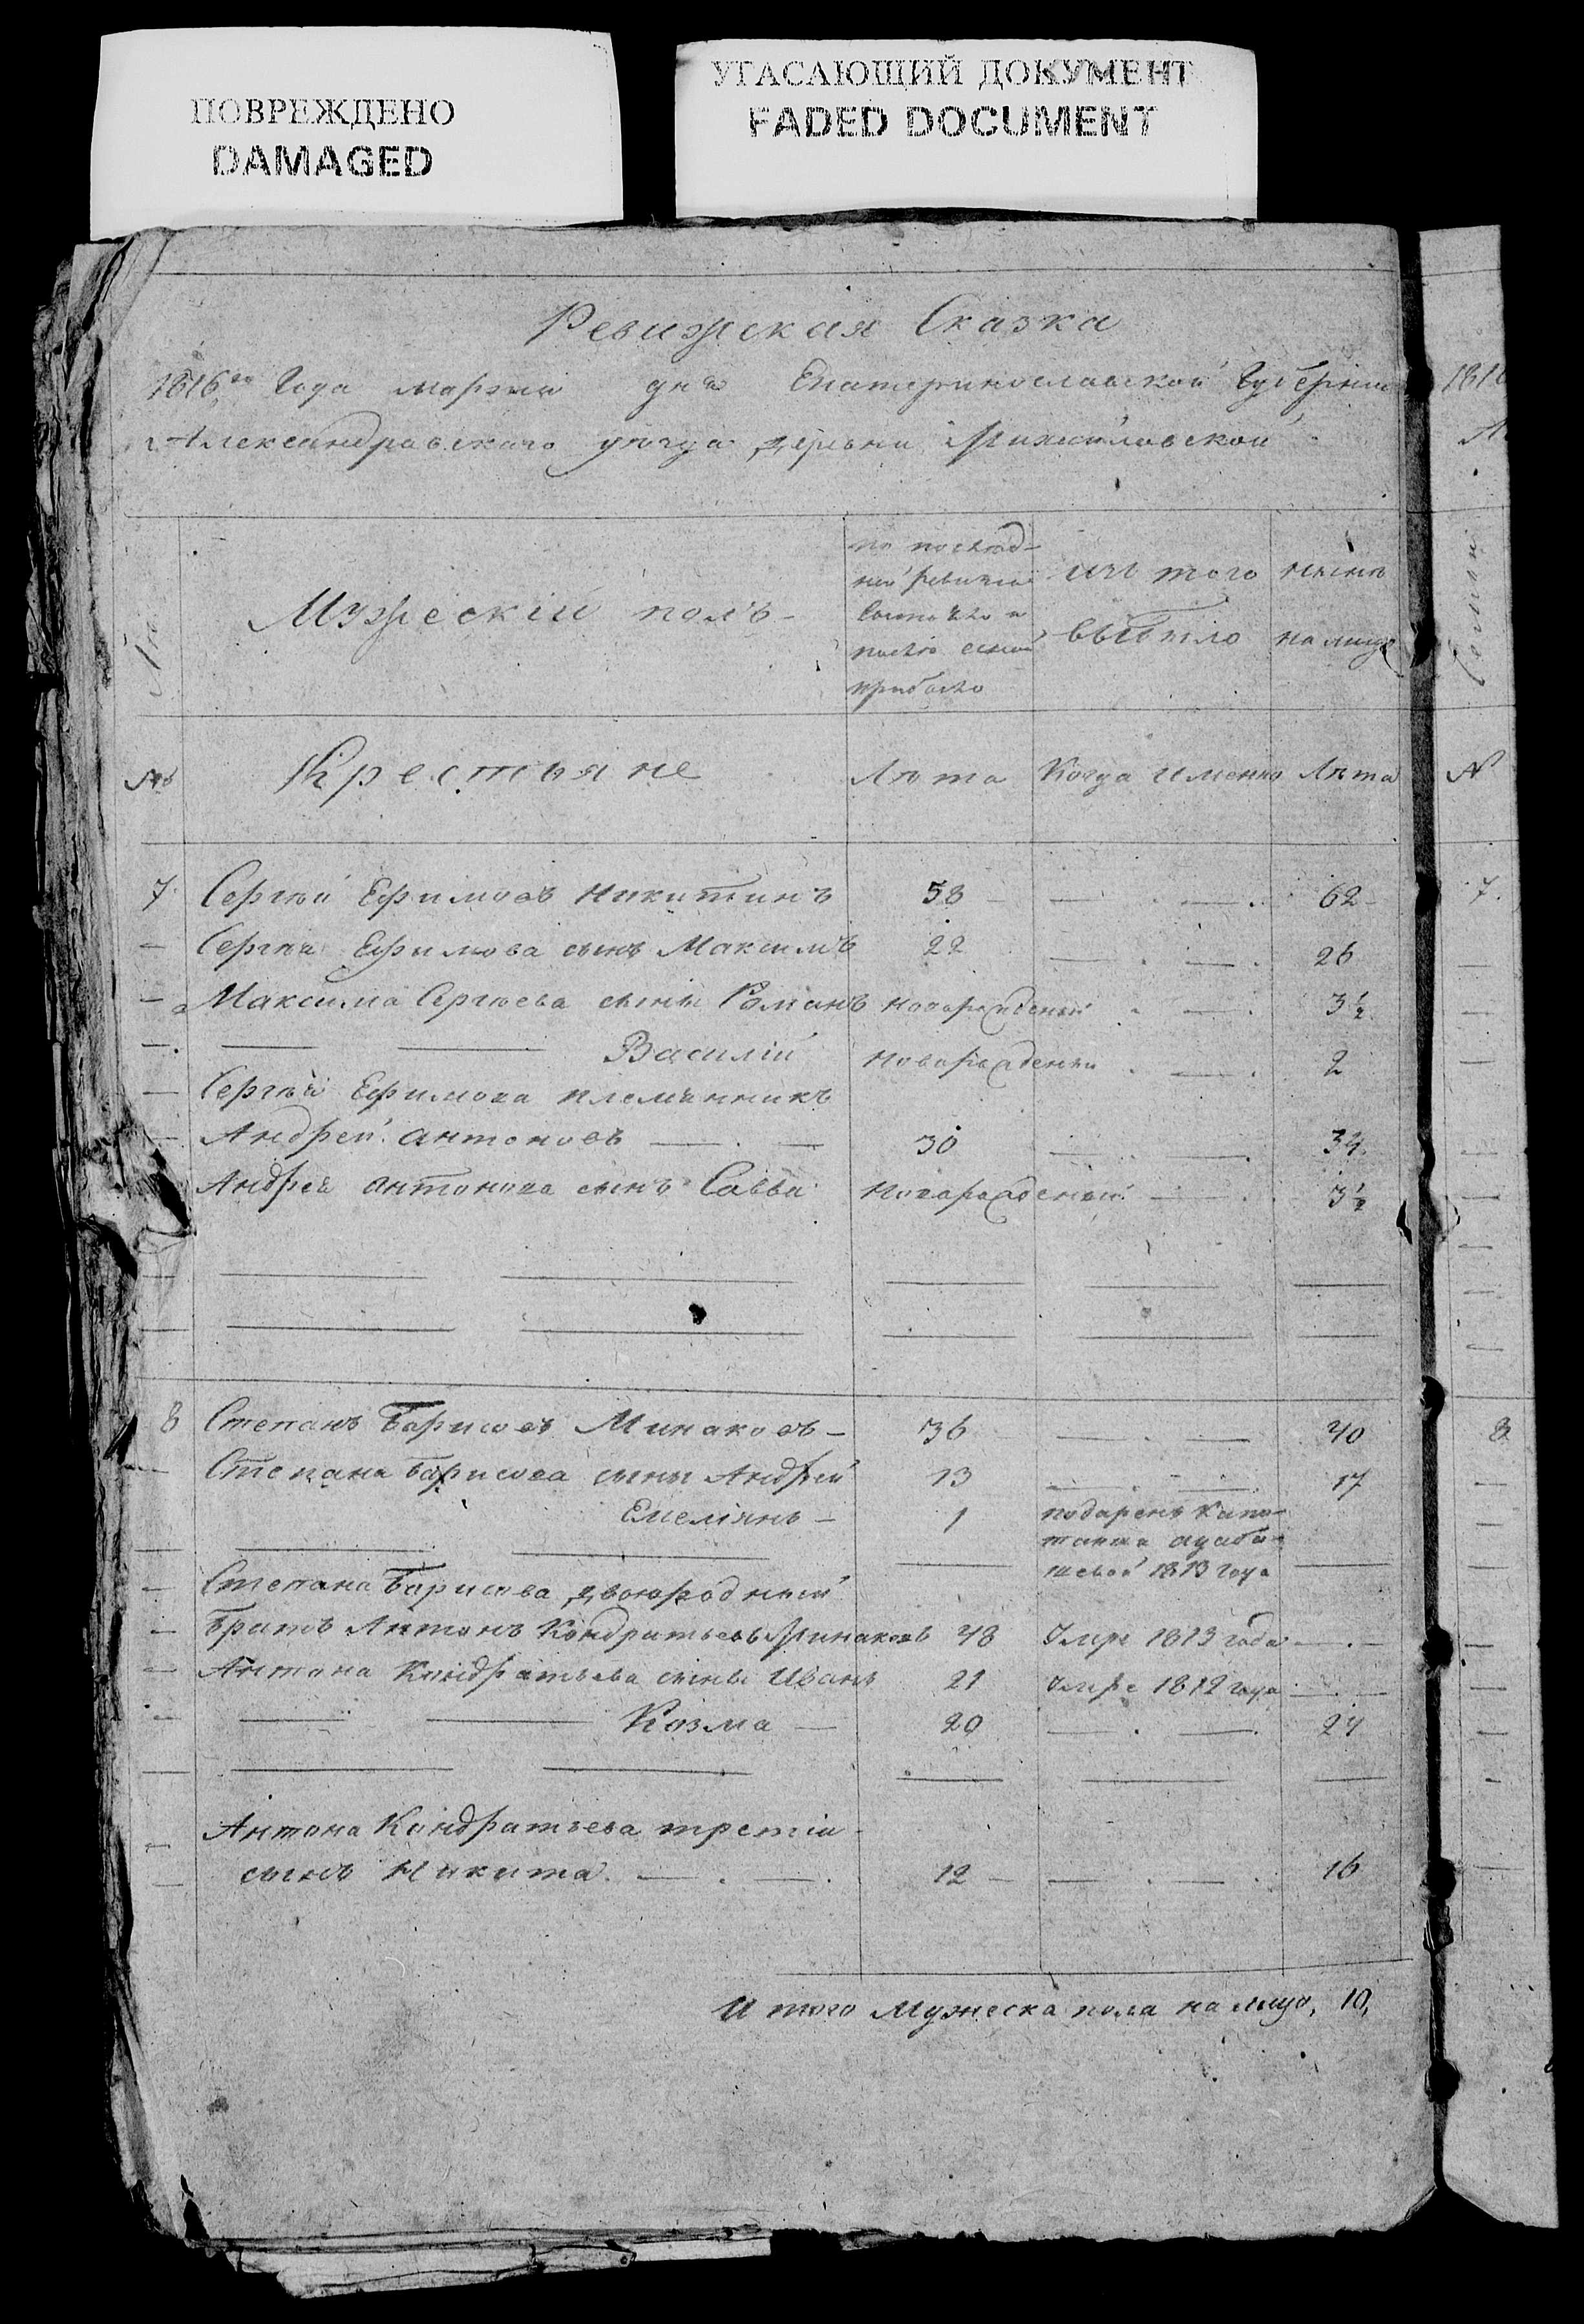 ПОВРЕЖДЕНО
DAMAGED
УГАСАЮЩИЙ ДОКУМЕНТ
FADED DOCUMENT
Ревижская Сказка
1816го Года марта дня Екатеринославской Губернии
Александравскаго уезда деревни Михайловской
Мужескій полъ
по послѣд-
ней ревизіи
состояло и
послѣ оной
прибыло
изъ того
выбыло
нынѣ
на лицо
№
Крестьяне
Лѣта
Когда именно
Лѣта
7 Сергѣй Ефимовъ Никитинъ 58 — . — . 62
— Сергѣя Ефимова сынъ Максимъ 22 — . — . 26
— Максима Сергѣева сыны Романъ новорожденый . — . 3½
— . — — Василій новорожденый . — . 2
— Сергѣя Ефимова племянникъ
— Андрей Антоновъ — . — 30 — . . — . 34
Андрея Антонова сынъ Савва новорожденый — . 3½
8 Степанъ Борисовъ Минаковъ — 36 — . — 40
— Степана Борисова сыны Андрей 13 — . — 17
Емеліянъ — 1 подаренъ Капи-
танше
шевой 1813 года
— Степана Борисова двоюродный
— Братъ Антонъ Кондратьевъ Минаковъ 48 Умре 1813 года — . —
— Антона Кондратьева сыны Иванъ 21 Умре 1812 года — . —
— — — Козма — 20 — . — . 24
— Антона Кондратьева третій
— сынъ Никита . — . — . 12 — — . — . 16
И того мужеска пола на лицо, 10,
1816
А
№
7.
8